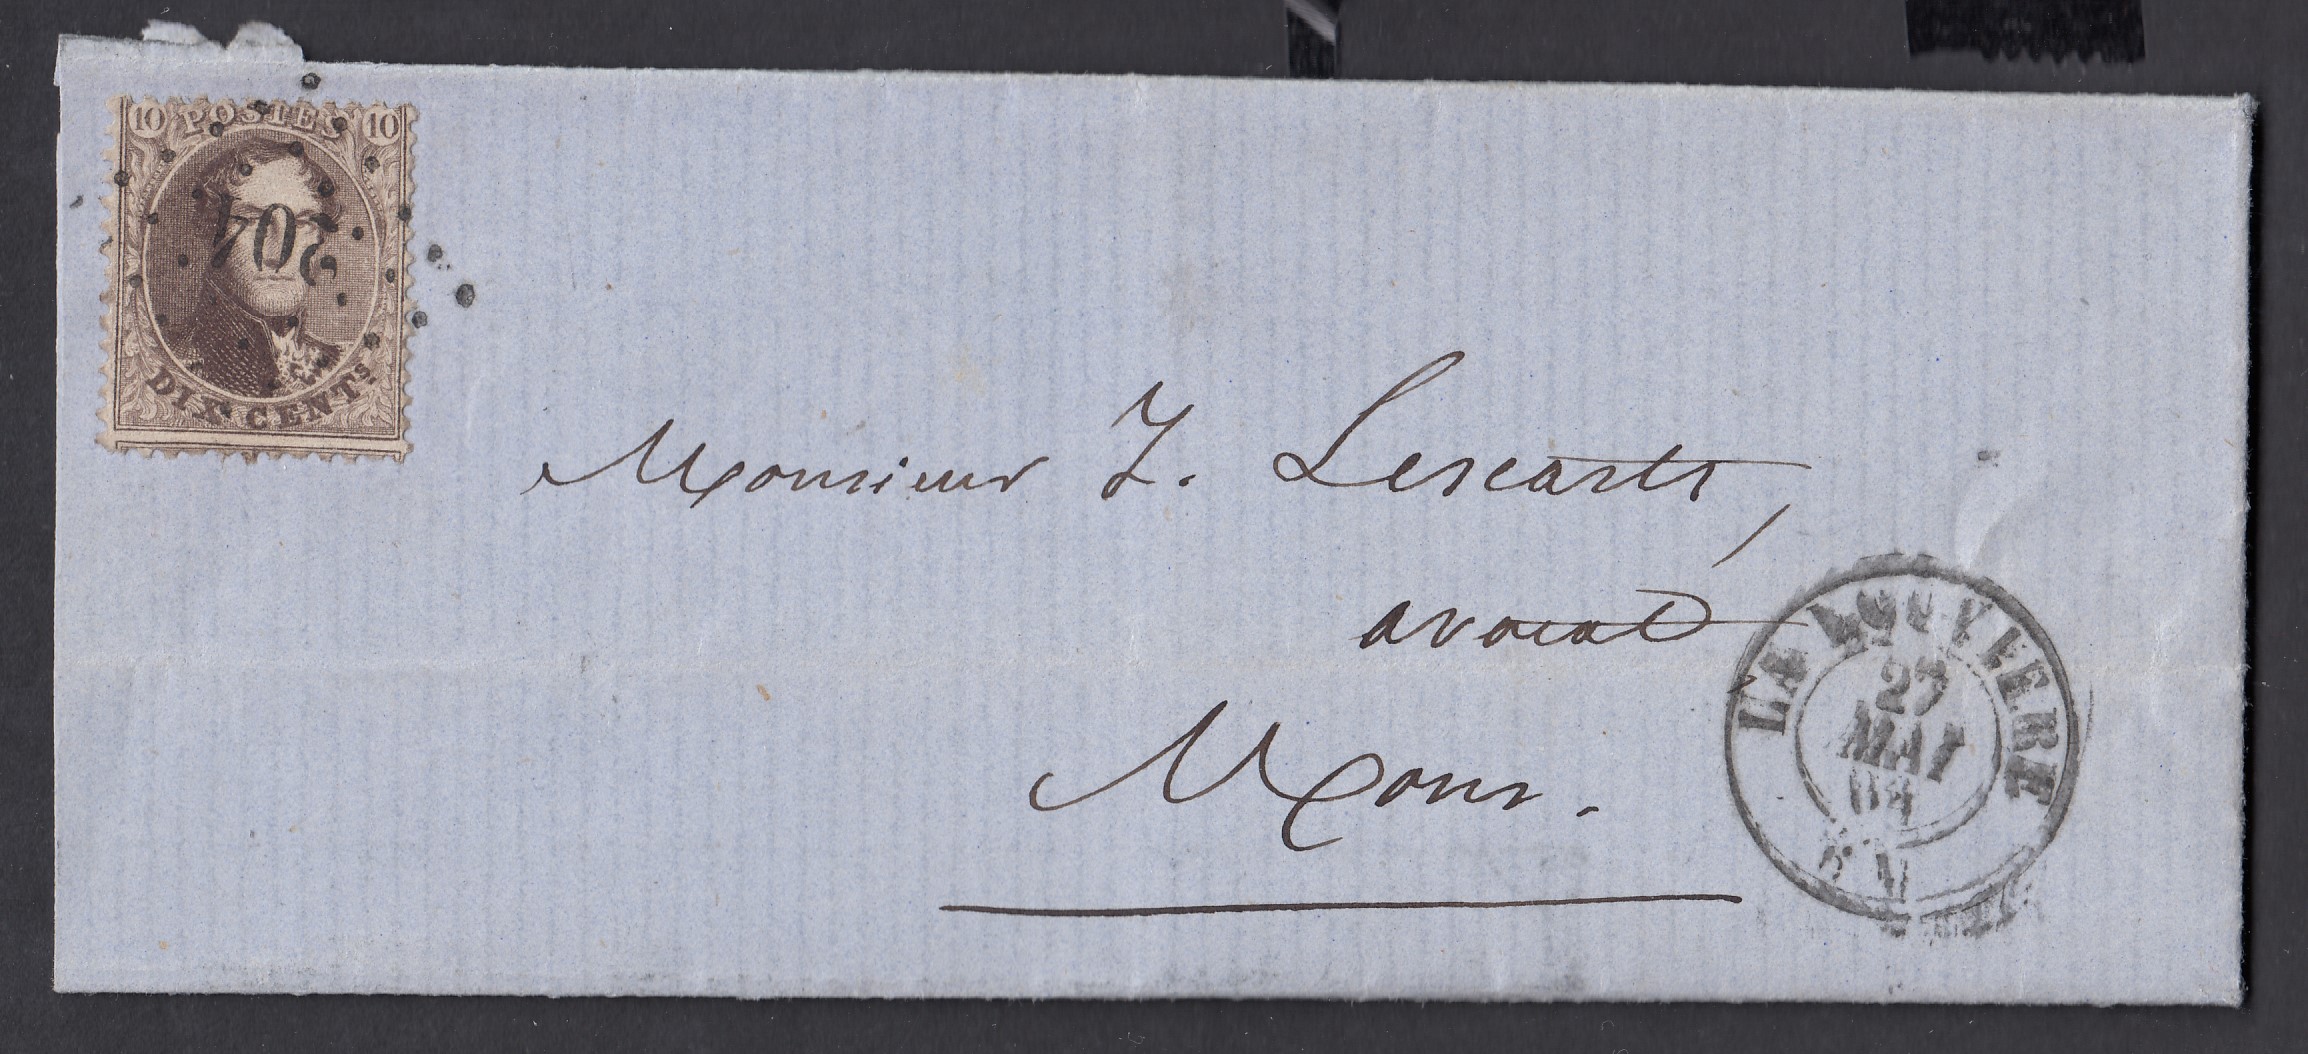 10 POSTES 10
204
DIX CENTS
Monsieur J. Lescarts,
avocat
Mons.
LA LOUVIERE
27
MAI